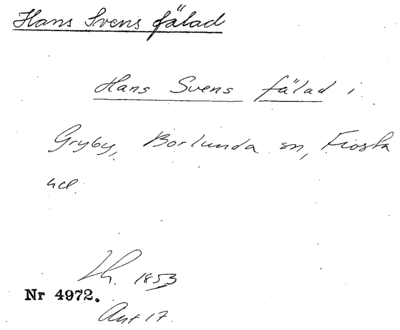 Hans Svens fälad
Hans Svens fälad i
Gryby, Borlunda sn, Frosta
hd.
Lh. 1853
Nr 4972.
Akt 17.